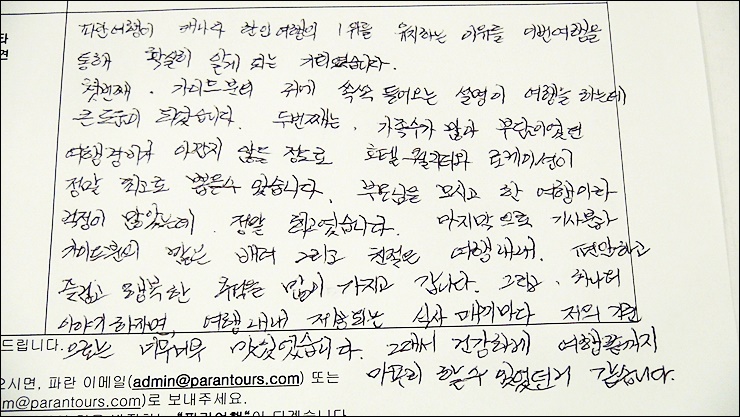 파란여행이 캐나다 한인여행의 1위를 유지하는 이유를 이번여행을
통해 확실히 알게 되는 계기였습니다.
첫번째. 가이드분의 귀에 쏙쏙 들어오는 설명이 여행을 하는데
큰 도움이 되었습니다. 두번째는, 가족수가 많아 부담이었던
여행경비가 아깝지 않을 정도로 호텔 퀄리티와 로케이션이
정말 최고로 뽑을수 있습니다. 부모님을 모시고 한 여행이라
걱정이 많았는데 정말 최고였습니다. 마지막으로 기사분과
가이드분의 많은 배려 그리고 친절은 여행내내 편안하고
즐겁고 행복한 추억을 많이 가지고 갑니다. 그리고, 하나더
이야기 하자면, 여행내내 제공되는 식사 매끼마다 저의 기준
으로는 너무너무 맛있었습니다. 그래서 건강하게 여행끝까지
마무리 할수 있었던거 같습니다.
타
견
드립니다.
으시면, 파란 이메일(admin@parantours.com) 또는
m@parantours.com)로 보내주세요.
"파란여행"이 되겠습니다